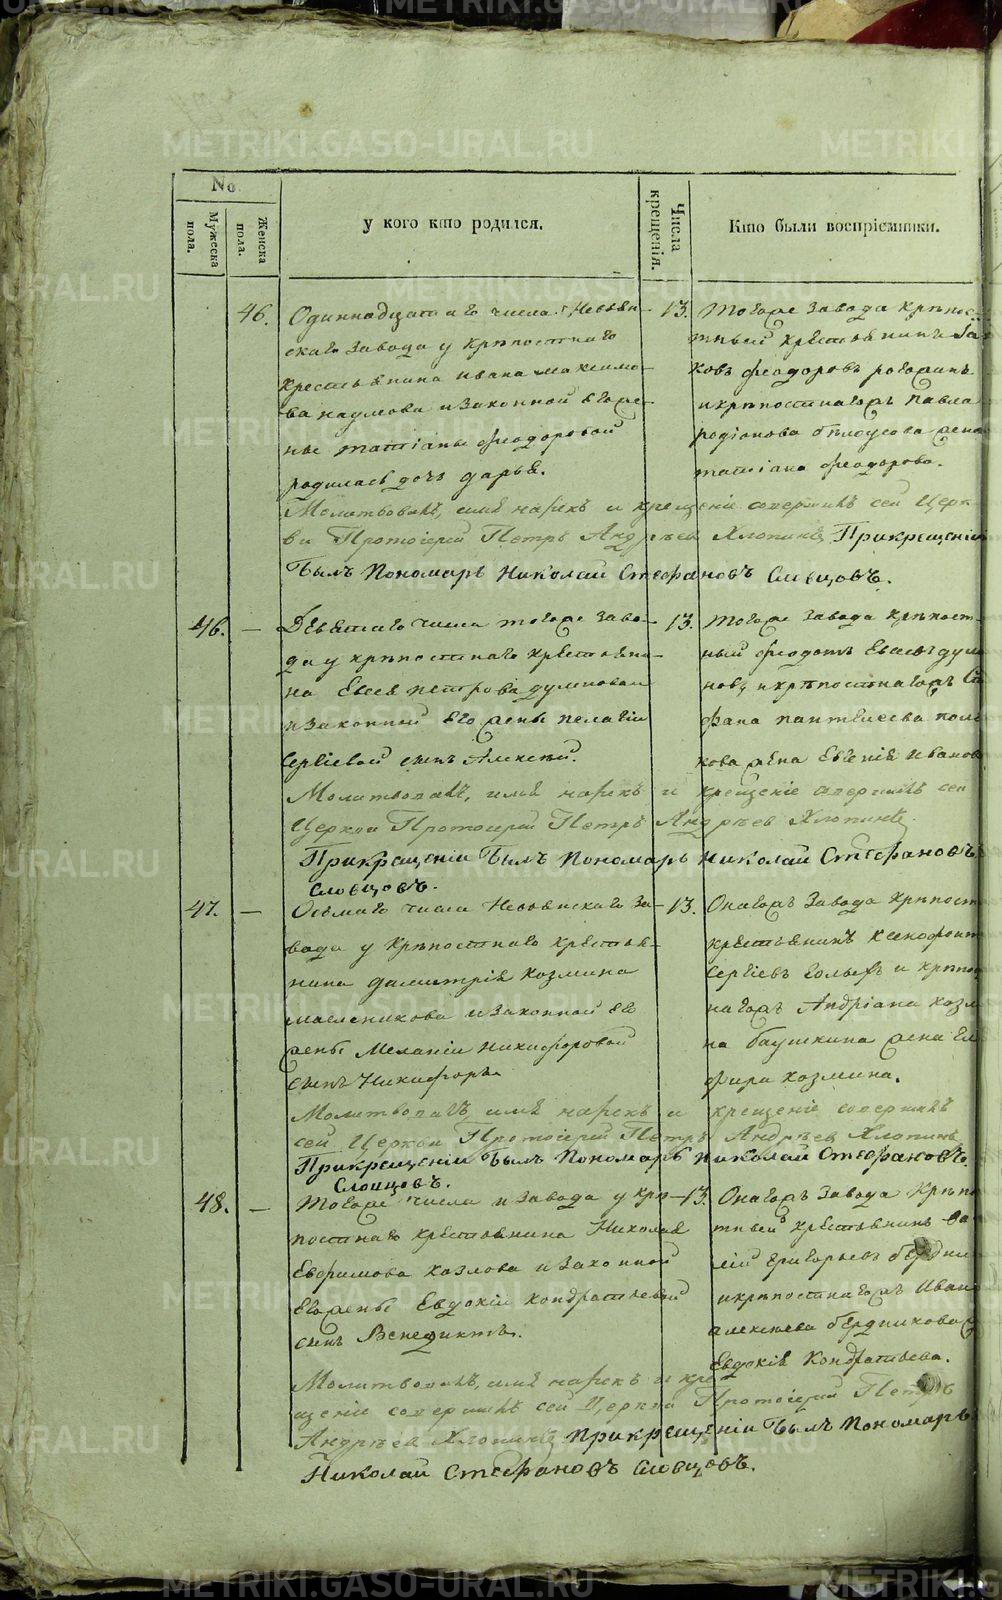 No
Мужеска пола.
Женска пола.
у кого кто родился.
Числа крещенія.
Кто были воспріємники.
46.
Одиннадцатаго числа Невьян-
скаго завода у крѣпостнаго
крестьянина ивана максимо-
ва наумова и законной его же-
ны татіаны феодоровой
родилась дочь дарья.
13.
тогоже завода крѣпос-
тный крестьянинъ Іа-
ковъ феодоровъ
и крѣпостнагожъ павла
родіонова бѣлоусова жена
татіана феодорова.
Молитвовалъ, имя нарекъ и крещеніе совершилъ сей Церк-
ви Протоіерей Петръ Андрѣев Хлопинъ, При крещеніи
былъ Пономарь Николай Стефановъ Словцовъ.
46.
Девятаго числа тогоже заво-
да у крѣпостнаго крестьяни-
на Евсея петрова думнова
и законной его жены пелагіи
Сергіевой сынъ Алексѣй.
13.
тогоже завода крѣпост-
ный феодотъ Евсеевъ дум-
новъ и крѣпостнагожъ Сте
фана пантелеева
кова жена Евгенія иванов
Молитвовалъ, имя нарекъ и крещеніе совершилъ сей
Церкви Протоіерей Петръ Андрѣев Хлопинъ,
При крещеніи былъ Пономарь Николай Стефановъ
Словцовъ.
47.
Осьмаго числа Невьянскаго за-
вода у крѣпостнаго крестья-
нина димитрія козмина
масленикова и законной его
жены Меланіи никифоровой
сынъ Никифоръ.
13.
Онагожъ завода крѣпост
крестьянинъ ксенофонт
Сергіевъ и крѣпос
нагожъ Андріана козм
на баушкина жена Гл
фира козмина.
Молитвовалъ, имя нарекъ и крещеніе совершилъ
сей Церкви Протоіерей Петръ Андрѣев Хлопинъ,
При крещеніи былъ Пономарь Николай Стефановъ
Словцовъ.
48.
тогоже числа и завода у крѣ-
постнаго крестьянина Николая
Евфимова козлова и законной
его жены Евдокіи кондратьевой
сынъ Венедиктъ.
13.
Онагожъ завода крѣпо
тный крестьянинъ Ва
лій григорьевъ
и крѣпостнагожъ Иван
алексѣева бердникова ж
Евдокія Кондратьева.
Молитвовалъ, имя нарекъ и кре
щеніе совершилъ сей Церкви Протоіерей Петръ
Андрѣев Хлопинъ, При крещеніи былъ Пономарь
Николай Стефановъ Словцовъ.
METRIKI.GASO-URAL.RU